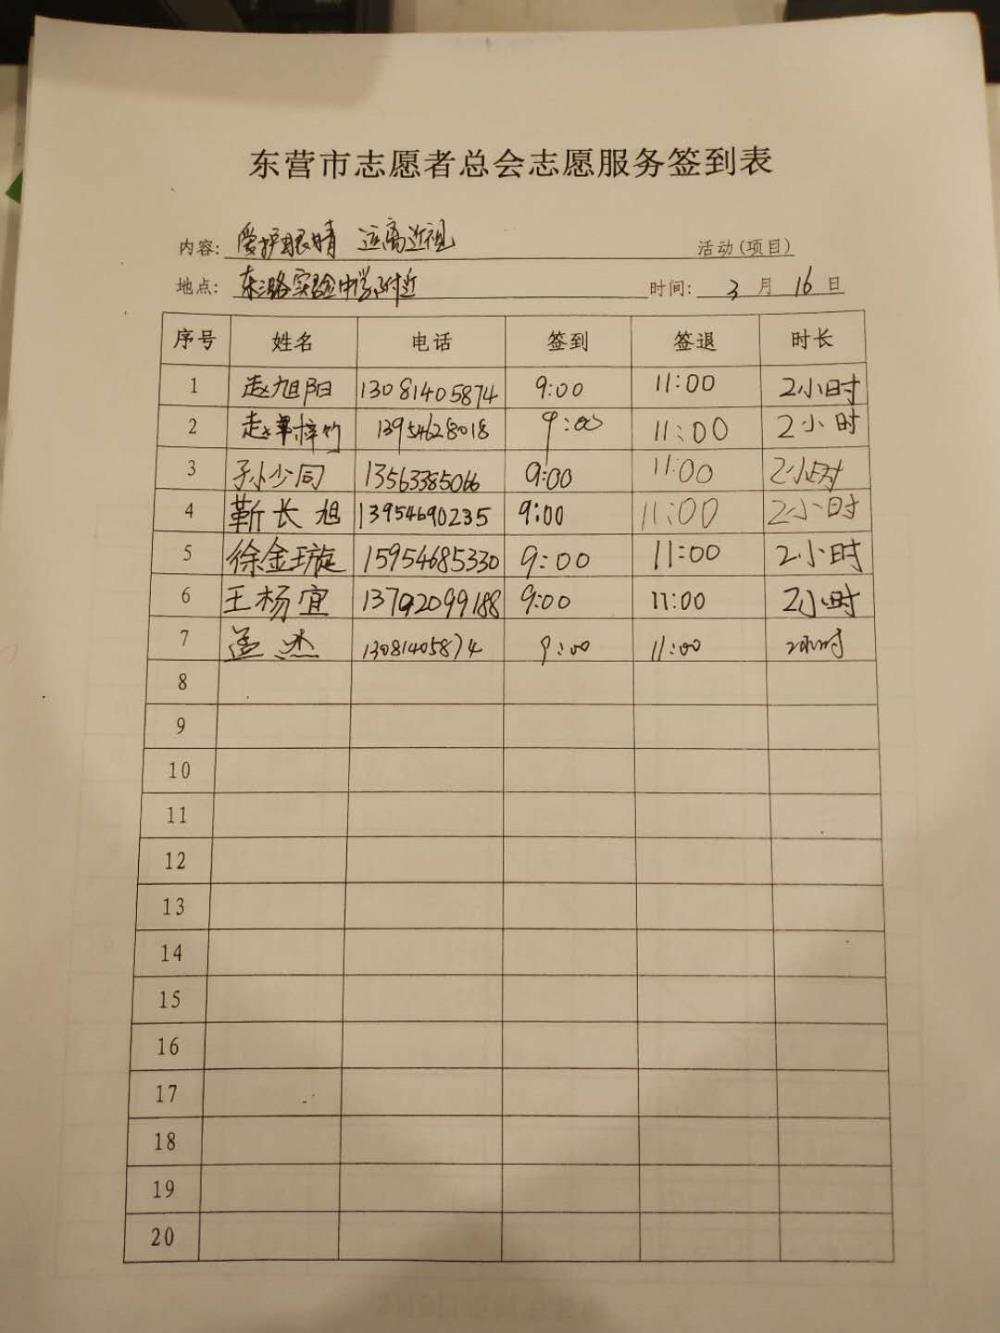 东营市志愿者总会志愿服务签到表
内容: 爱护眼睛 远离近视 活动(项目)
地点: 东三路实验中学附近 时间: 3 月 16 日
序号 姓名 电话 签到 签退 时长
1 赵旭阳 13081405874 9:00 11:00 2小时
2 赵 梓竹 13954628018 9:00 11:00 2小时
3 孙少同 13563385066 9:00 11:00 2小时
4 靳长旭 13954690235 9:00 11:00 2小时
5 徐金璇 15954685330 9:00 11:00 2小时
6 王杨宜 13792099188 9:00 11:00 2小时
7 孟杰 13081405874 9:00 11:00 2小时
8
9
10
11
12
13
14
15
16
17
18
19
20